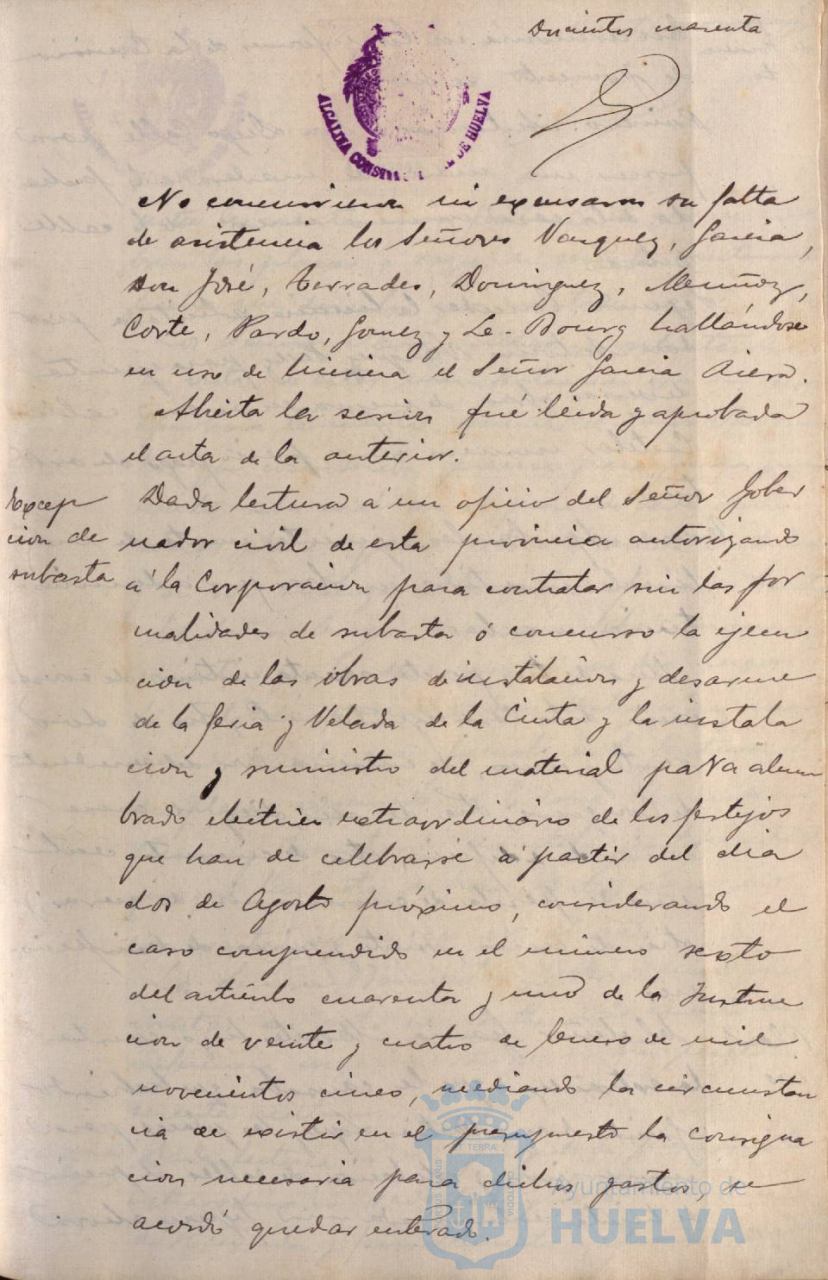 Doscientos cuarenta
ALCALDIA CONS DE HUELVA
No concurrieron ni excusaron su falta
de asistencia los Señores Vazquez, Garcia,
don José, Terrades, Dominguez, Muñoz,
Corte, Pardo, Gomez y Le-Bourg hallándose
en uso de licencia el Señor Garcia
Abierta la sesion fué leida y aprobada
el acta de la anterior.
Excep
cion de
subasta
Dada lectura á un oficio del Señor Gober
nador civil de esta provincia autorizando
á la Corporacion para contratar sin las for
malidades de subasta ó concurso la ejecu
ción de las obras de instalacion y desarme
de la feria y Velada de la Cinta y la instala
cion y suministro del material para alum
brado eléctrico extraordinario de los festejos
que han de celebrarse á partir del dia
dos de Agosto próximo, considerando el
caso comprendido en el número sexto
del artículo cuarenta y uno de la Instruc
cion de veinte y cuatro de Enero de mil
novecientos cinco, mediando la circunstan
cia de existir en el presupuesto la consigna
cion necesaria para dichos gastos, se
acordó quedar enterado.
TERRA
Ayuntamiento de
HUELVA